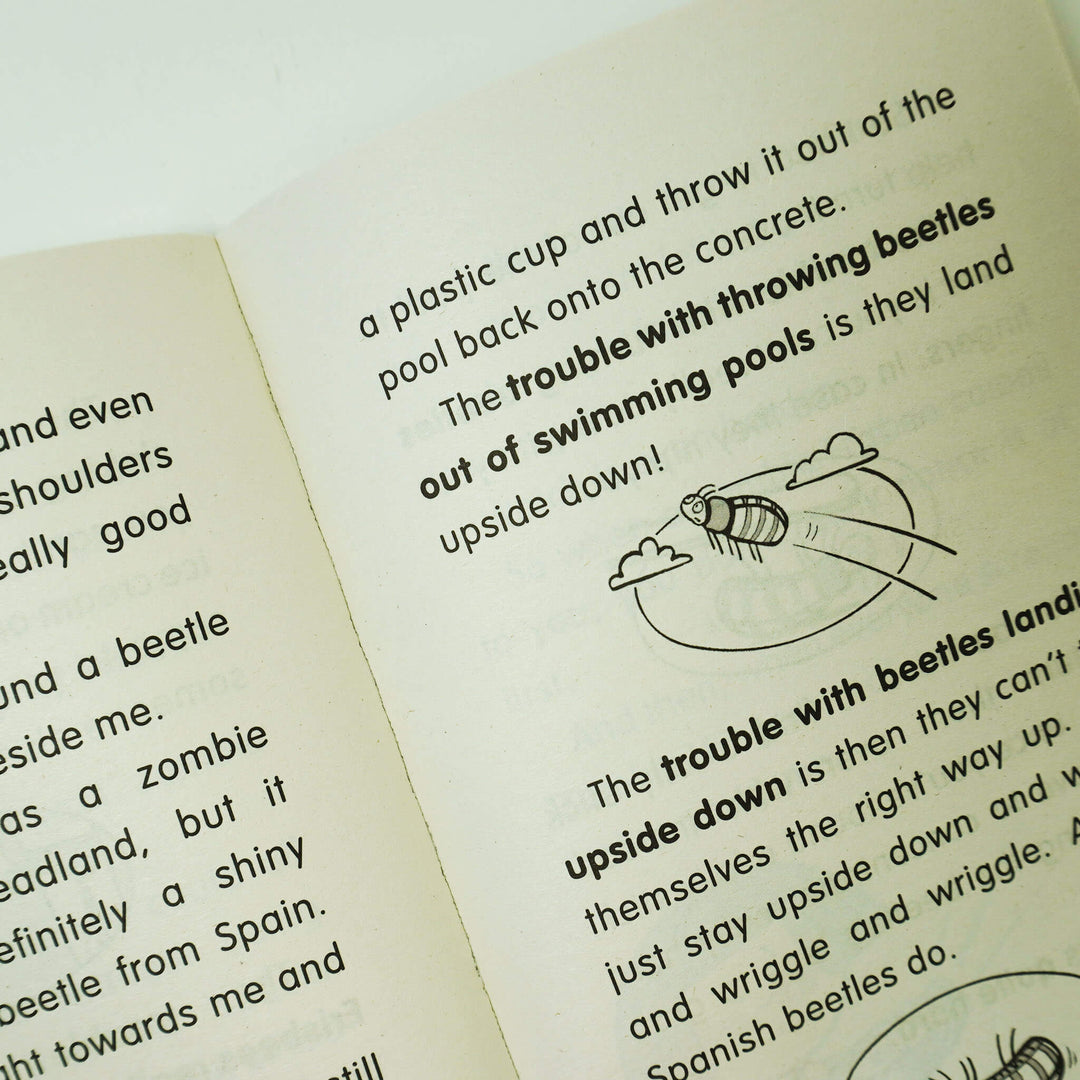 and even
shoulders
good
a beetle
me.
as a zombie
but it
a shiny
beetle from Spain.
towards me and
a plastic cup and throw it out of the
pool back onto the concrete.
The trouble with throwing beetles
out of swimming pools is they land
upside down!
The trouble with beetles
upside down is then they can't
themselves the right way up.
just stay upside down and
and wriggle and wriggle.
Spanish beetles do.